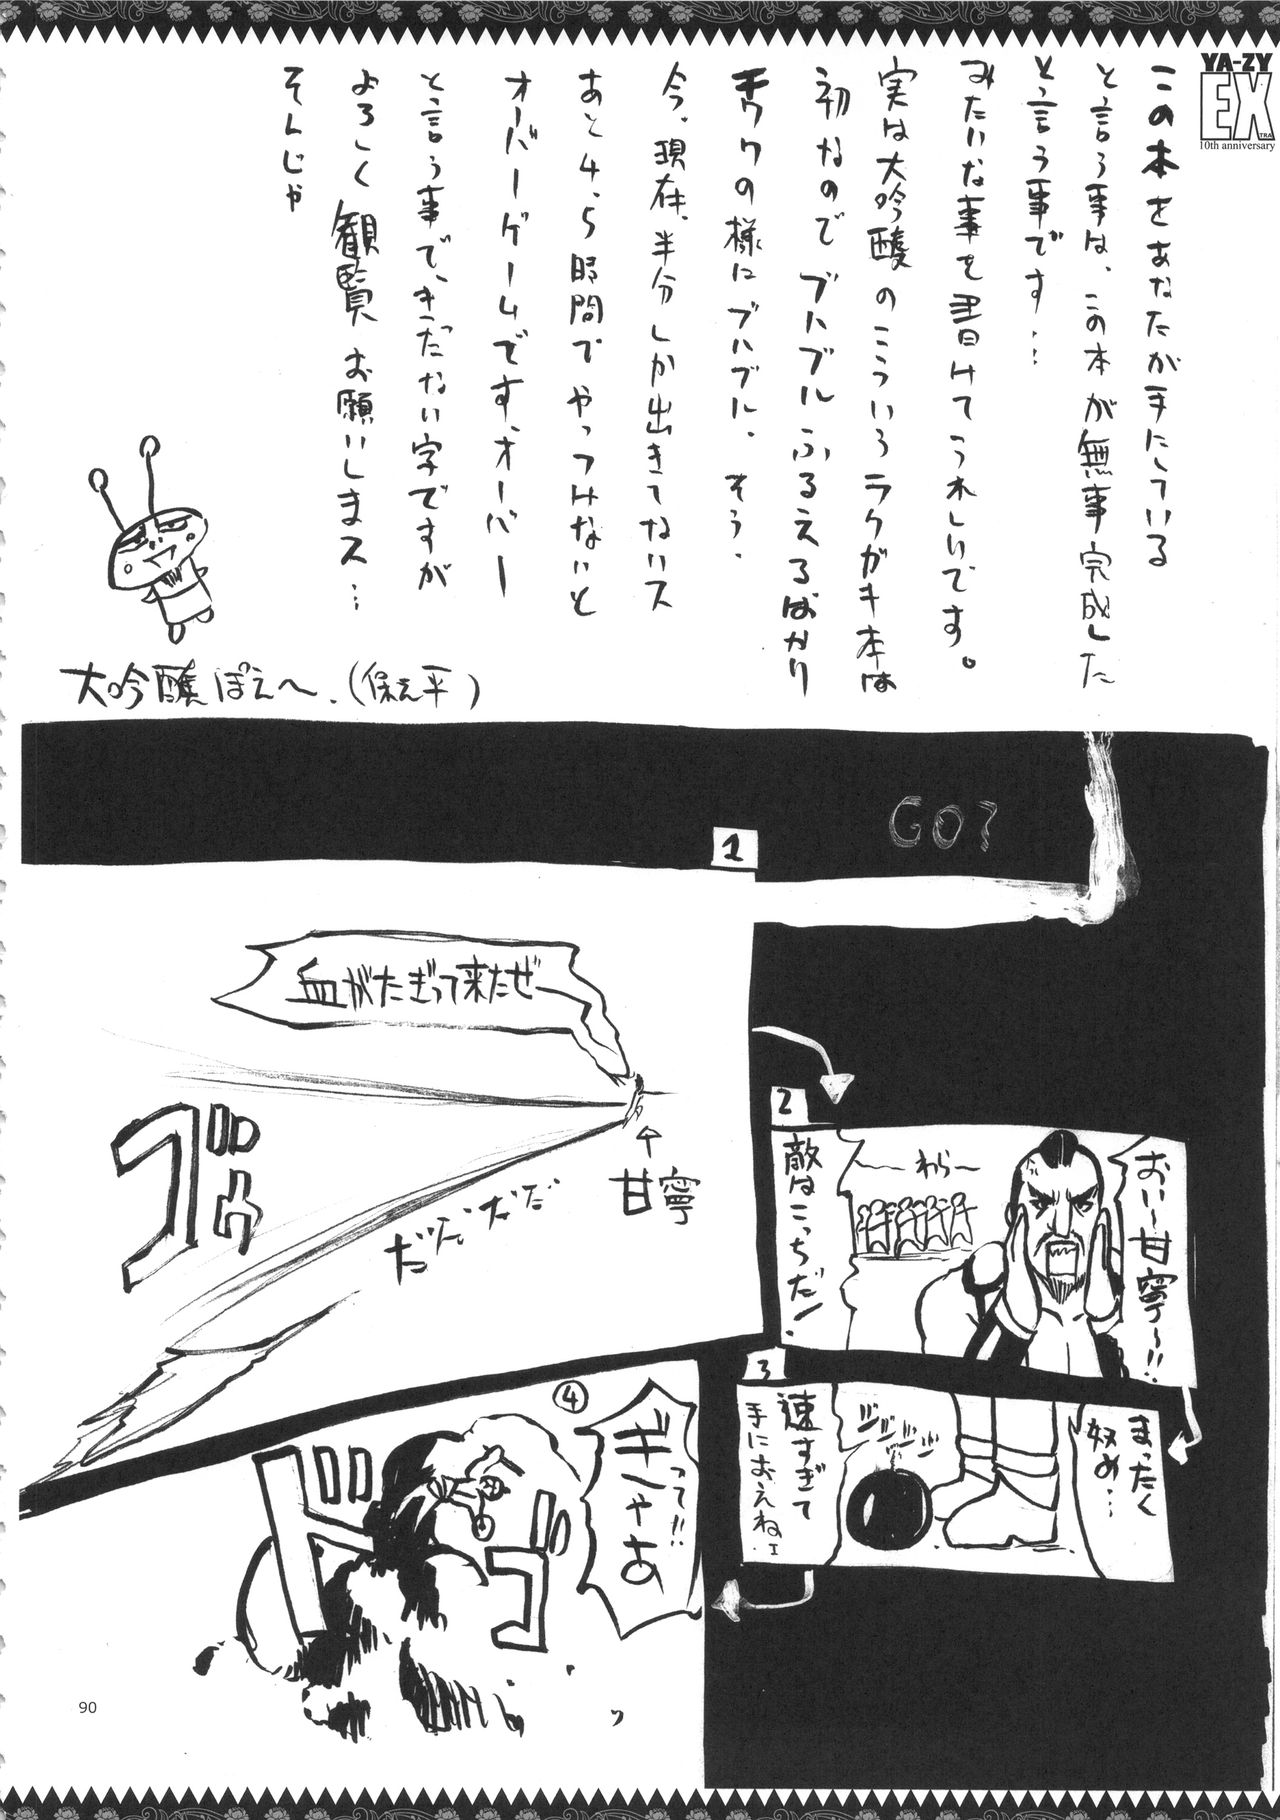 YA-ZY
EX
TRA
10th anniversary
この本をあなたが手にしている
と言う事は、この本が無事完成した
と言う事です…
みたいな事を書けてうれしいです。
実は大吟醸のこういうラクガキ本は
初なのでブルブルふるえるばかり
チワワの様にブルブル、そう、
今、現在、半分しか出きてないス
あと4、5時間でやっつけないと
オーバーゲームです、オーバー
と言う事で、きったない字ですが
よろしく観覧お願いしまス…
そんじゃ
大吟醸ぽえ〜、(保え平)
GO?
1
血がたぎって来たぜ
甘寧
だだだだだ
ゴゥ
2
おい〜甘寧〜!!
わら〜
敵はこっちだ!
3
まったく
奴め…
速すぎて
手におえねェ
ジジジジ
4
って!!
ぎゃあ
ドゴ
90